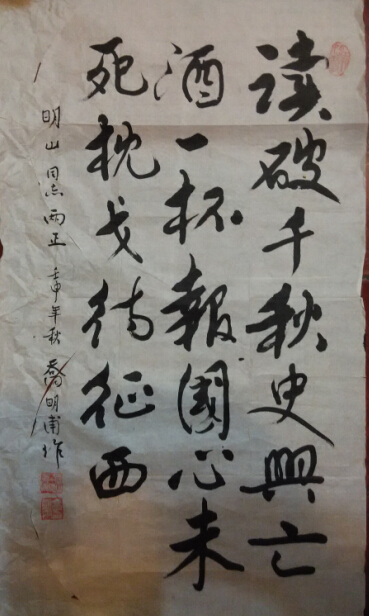 读破千秋史興亡
酒一杯報國心未
死枕戈待征西
明山同志两正 壬申年秋 喬明甫作